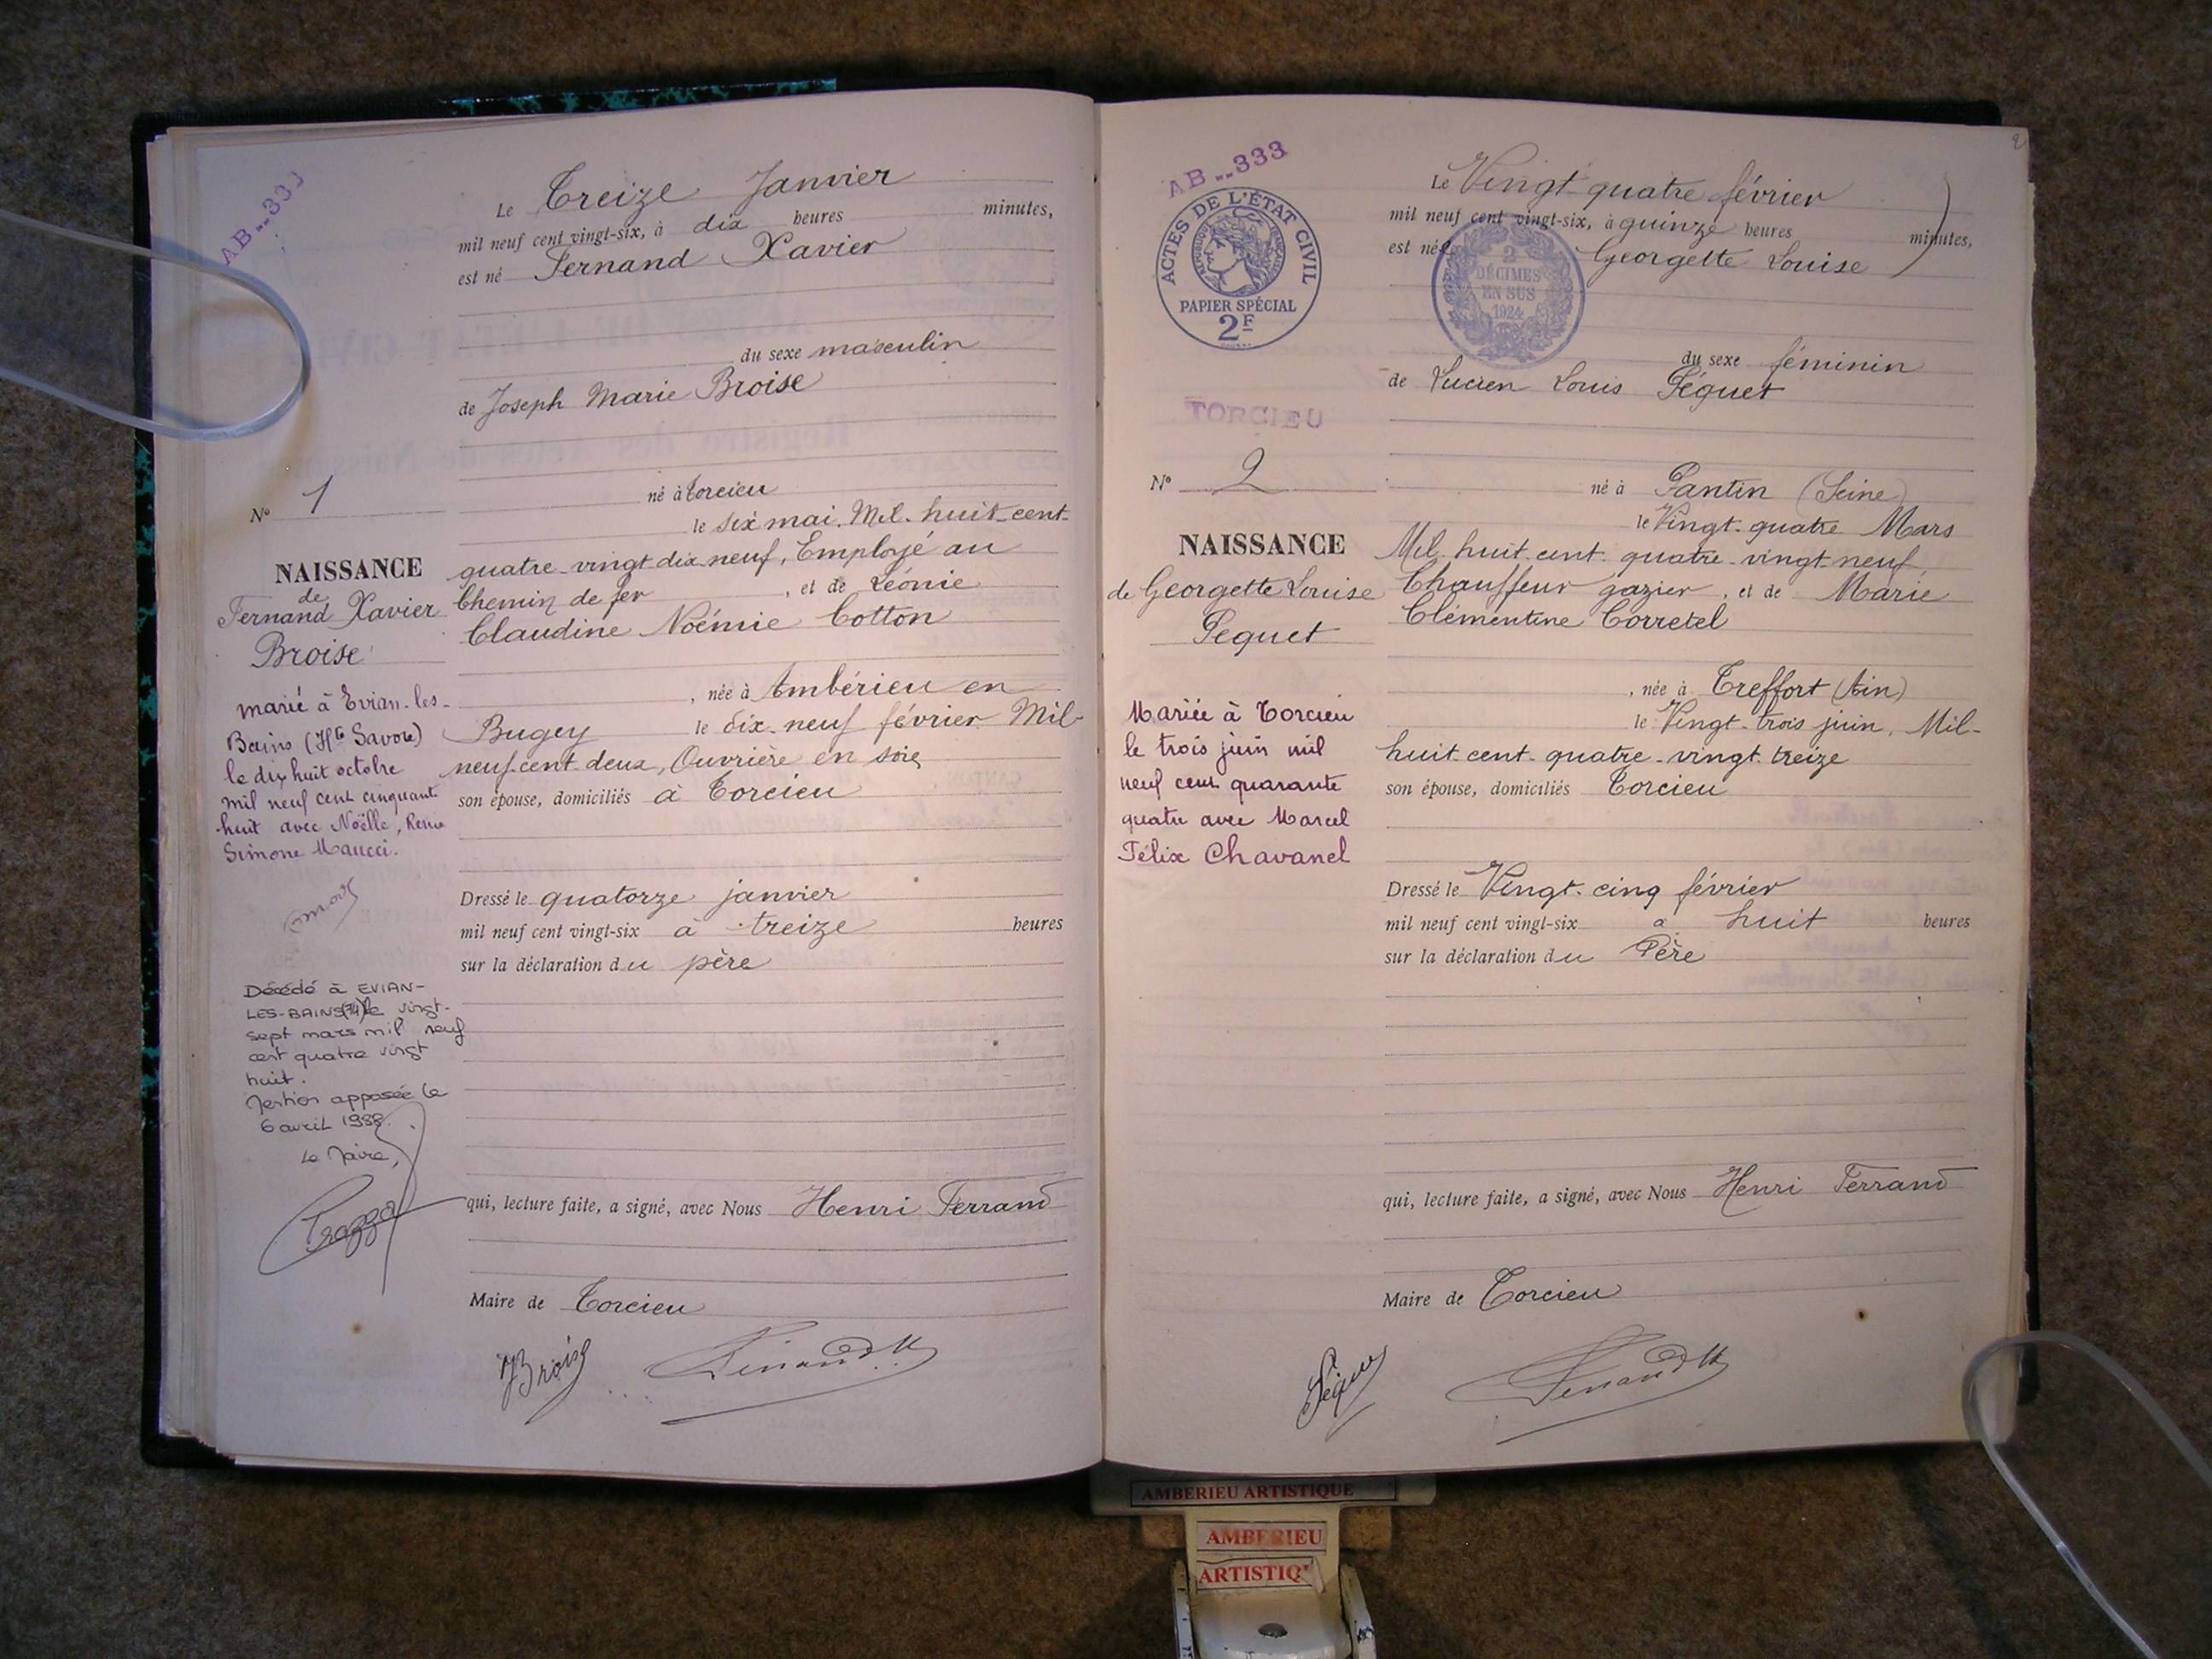 AB 333
Le Treize Janvier
mil neuf cent vingt-six, à dix heures minutes,
est né Fernand Xavier
du sexe masculin
de Joseph Marie Broise
né à Torcieu
le six mai Mil huit cent
quatre-vingt dix neuf, Employé au
Chemin de fer, et de Léonie
Claudine Noémie Cotton
, née à Ambérieu en
Bugey le dix neuf février Mil
neuf cent deux, Ouvrière en soie
son épouse, domiciliés à Torcieu
Dressé le quatorze janvier
mil neuf cent vingt-six à treize heures
sur la déclaration du père
qui, lecture faite, a signé, avec Nous Henri Ferrand
Maire de Torcieu
JBroise
Ferrand H
N° 1
NAISSANCE
de
Fernand Xavier
Broise
marié à Evian-les-
Bains (Hte Savoie)
le dix huit octobre
mil neuf cent cinquante
huit avec Noëlle, Renée
Simone Maucci.
Décédé à EVIAN-
LES-BAINS (74) le vingt-
sept mars mil neuf
cent quatre vingt
huit.
Mention apposée le
6 avril 1988.
Le Maire,
2
AB 333
ACTES DE L'ÉTAT CIVIL
RÉPUBLIQUE FRANÇAISE
PAPIER SPÉCIAL
2F
TORCIEU
N° 2
NAISSANCE
de Georgette Louise
Péquet
Mariée à Torcieu
le trois juin mil
neuf cent quarante
quatre avec Marcel
Félix Chavanel
Le Vingt quatre février
mil neuf cent vingt-six, à quinze heures minutes,
est née Georgette Louise
2
DÉCIMES
EN SUS
1924
du sexe féminin
de Lucien Louis Péquet
né à Pantin (Seine)
le Vingt-quatre Mars
Mil huit cent quatre-vingt-neuf,
Chauffeur gazier, et de Marie
Clémentine Corretel
, née à Treffort (Ain)
le Vingt-trois juin, Mil-
huit cent quatre-vingt treize
son épouse, domiciliés Torcieu
Dressé le Vingt-cinq février
mil neuf cent vingt-six à huit heures
sur la déclaration du Père
qui, lecture faite, a signé, avec Nous Henri Ferrand
Maire de Torcieu
Péquet
Ferrand H
AMBERIEU ARTISTIQUE
AMBERIEU
ARTISTIQ